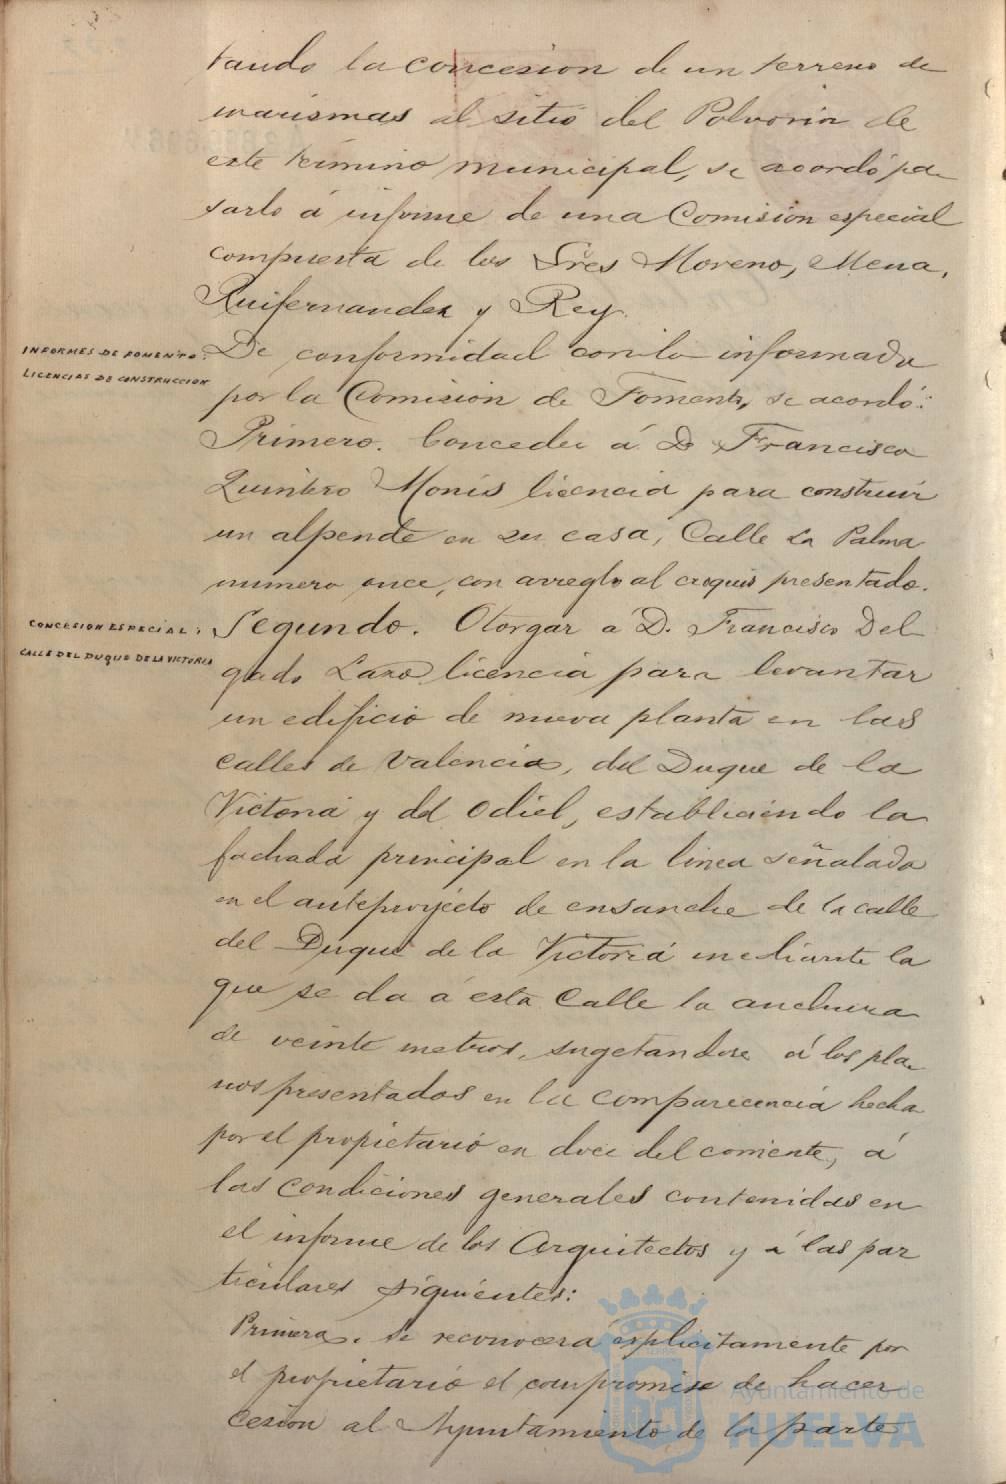 tando la concesion de un terreno de
marismas al sitio del Polvorin de
este término municipal, se acordó pa
sarlo á informe de una Comision especial
compuesta de los Sres Moreno, Mena,
Ruifernandez y Rey.
INFORMES DE FOMENTO:
LICENCIAS DE CONSTRUCCION
De conformidad con lo informado
por la Comision de Fomento, se acordó:
Primero. Conceder á D. Francisco
Quintero Monis licencia para construir
un alpende en su casa, Calle La Palma
numero once, con arreglo al croquis presentado.
CONCESION ESPECIAL:
CALLE DEL DUQUE DE LA VICTORIA
Segundo. Otorgar a D. Francisco Del
gado Lazo licencia para levantar
un edificio de nueva planta en las
calles de Valencia, del Duque de la
Victoria y del Odiel, estableciendo la
fachada principal en la linea señalada
en el anteproyecto de ensanche de la calle
del Duque de la Victoria mediante la
que se da á esta Calle la anchura
de veinte metros, sugetandose á los pla
nos presentados en la comparecencia hecha
por el propietario en doce del corriente, á
las condiciones generales contenidas en
el informe de los Arquitectos y á las par
ticulares siguientes:
Primera. Se reconocerá esplicitamente por
el propietario el compromiso de hacer
cesion al Ayuntamiento de la parte
Ayuntamiento de
HUELVA